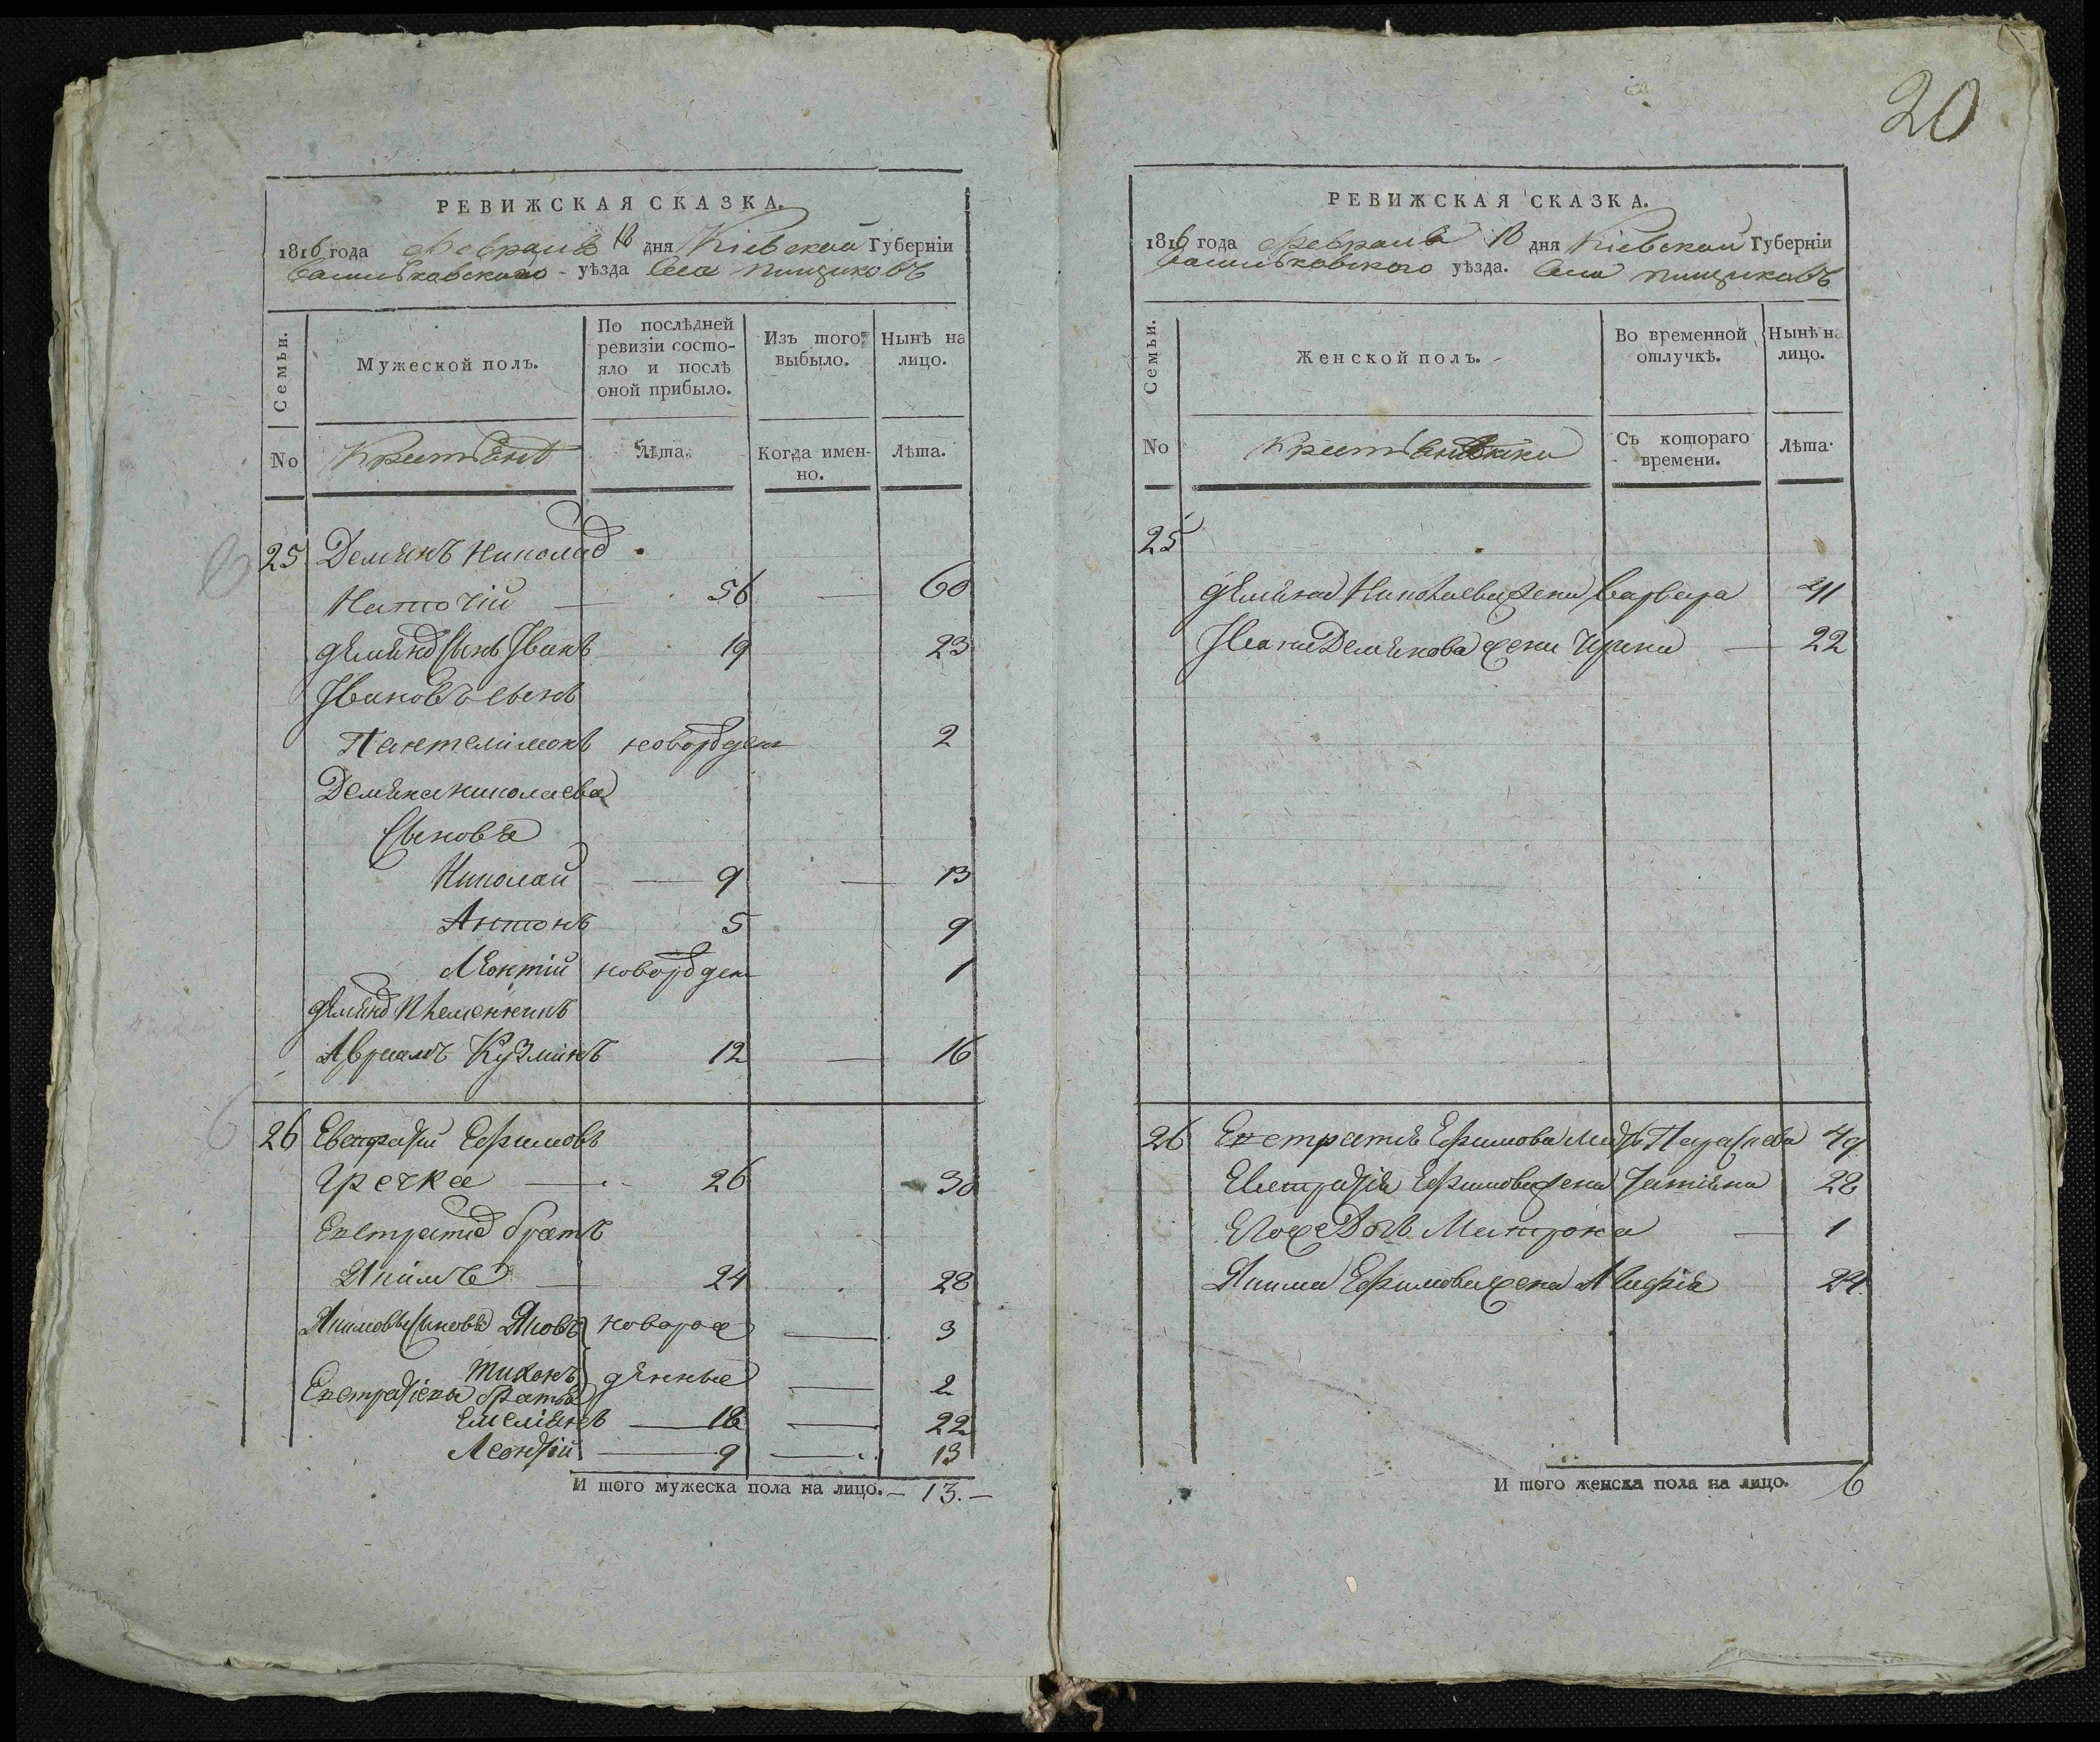 20
РЕВИЖСКАЯ СКАЗКА.
1816 года Февраля 18 дня Кіевской Губерніи
Васильковского уѣзда Села пищиковъ
Семьи.
Мужеской полъ.
По послѣдней ревизіи состояло и послѣ оной прибыло.
Изъ того выбыло.
Нынѣ на лицо.
No
Лѣта.
Когда именно.
Лѣта.
25 Демянъ Николаев
56 60
Демянов сынъ Иванъ 19 23
Ивановъ сынъ
Пантелимонъ новорожден 2
Демяна николаева
Сыновья
Николай 9 13
Антонъ 5 9
Леонтій новорожден 1
Демянов племенникъ
Авраамъ Кузминъ 12 16
26 Евстратій Ефимовъ
Гречка 26 30
Евстратіев братъ
Якимъ 24 28
Якимовы сыновья Яковъ новорож 3
тихонъ денные 2
Евстратіевы братья
Емеліянъ 18 22
Леонтій 9 13
И того мужеска пола на лицо. 13.
РЕВИЖСКАЯ СКАЗКА.
1816 года Февраля 18 дня Кіевской Губерніи
Васильковского уѣзда. Села пищиковъ
Семьи.
Женской полъ.
Во временной отлучкѣ.
Нынѣ на лицо.
No
Съ котораго времени.
Лѣта.
25
Демяна Николаева жена Варвара 41
Ивана Демянова жена Ирина 22
26 Евстратія Ефимова мать Параскева 49
Евстратія Ефимова жена Татіяна 28
Егоже Дочь Матрона 1
Якима Ефимова жена 24
И того женска пола на лицо. 6